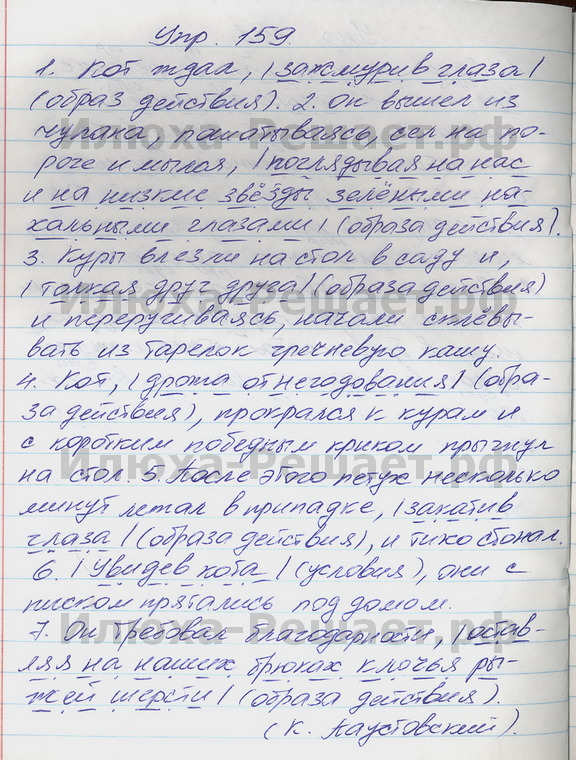 Упр. 159.
1. Кот ждал, |зажмурив глаза|
(образ действия). 2. Он вышел из
чулана, пошатываясь, сел на по-
роге и мылся, |поглядывая на нас
и на низкие звёзды зелёными на-
хальными глазами| (образа действия).
3. Куры влезли на стол в саду и,
|толкая друг друга| (образа действия)
и переругиваясь, начали склёвы-
вать из тарелок гречневую кашу.
4. Кот, |дрожа от негодования| (обра-
за действия), прокрался к курам и
с коротким победным криком прыгнул
на стол. 5. После этого петух несколько
минут лежал в припадке, |закатив
глаза| (образа действия), и тихо стонал.
6. |Увидев кота| (условия), они с
писком прятались под домом.
7. Он требовал благодарности, |остав-
ляя на наших брюках клочья ры-
жей шерсти| (образа действия).
(К. Паустовский).
Илюха-Решает.рф
Илюха-Решает.рф
Илюха-Решает.рф
Илюха-Решает.рф